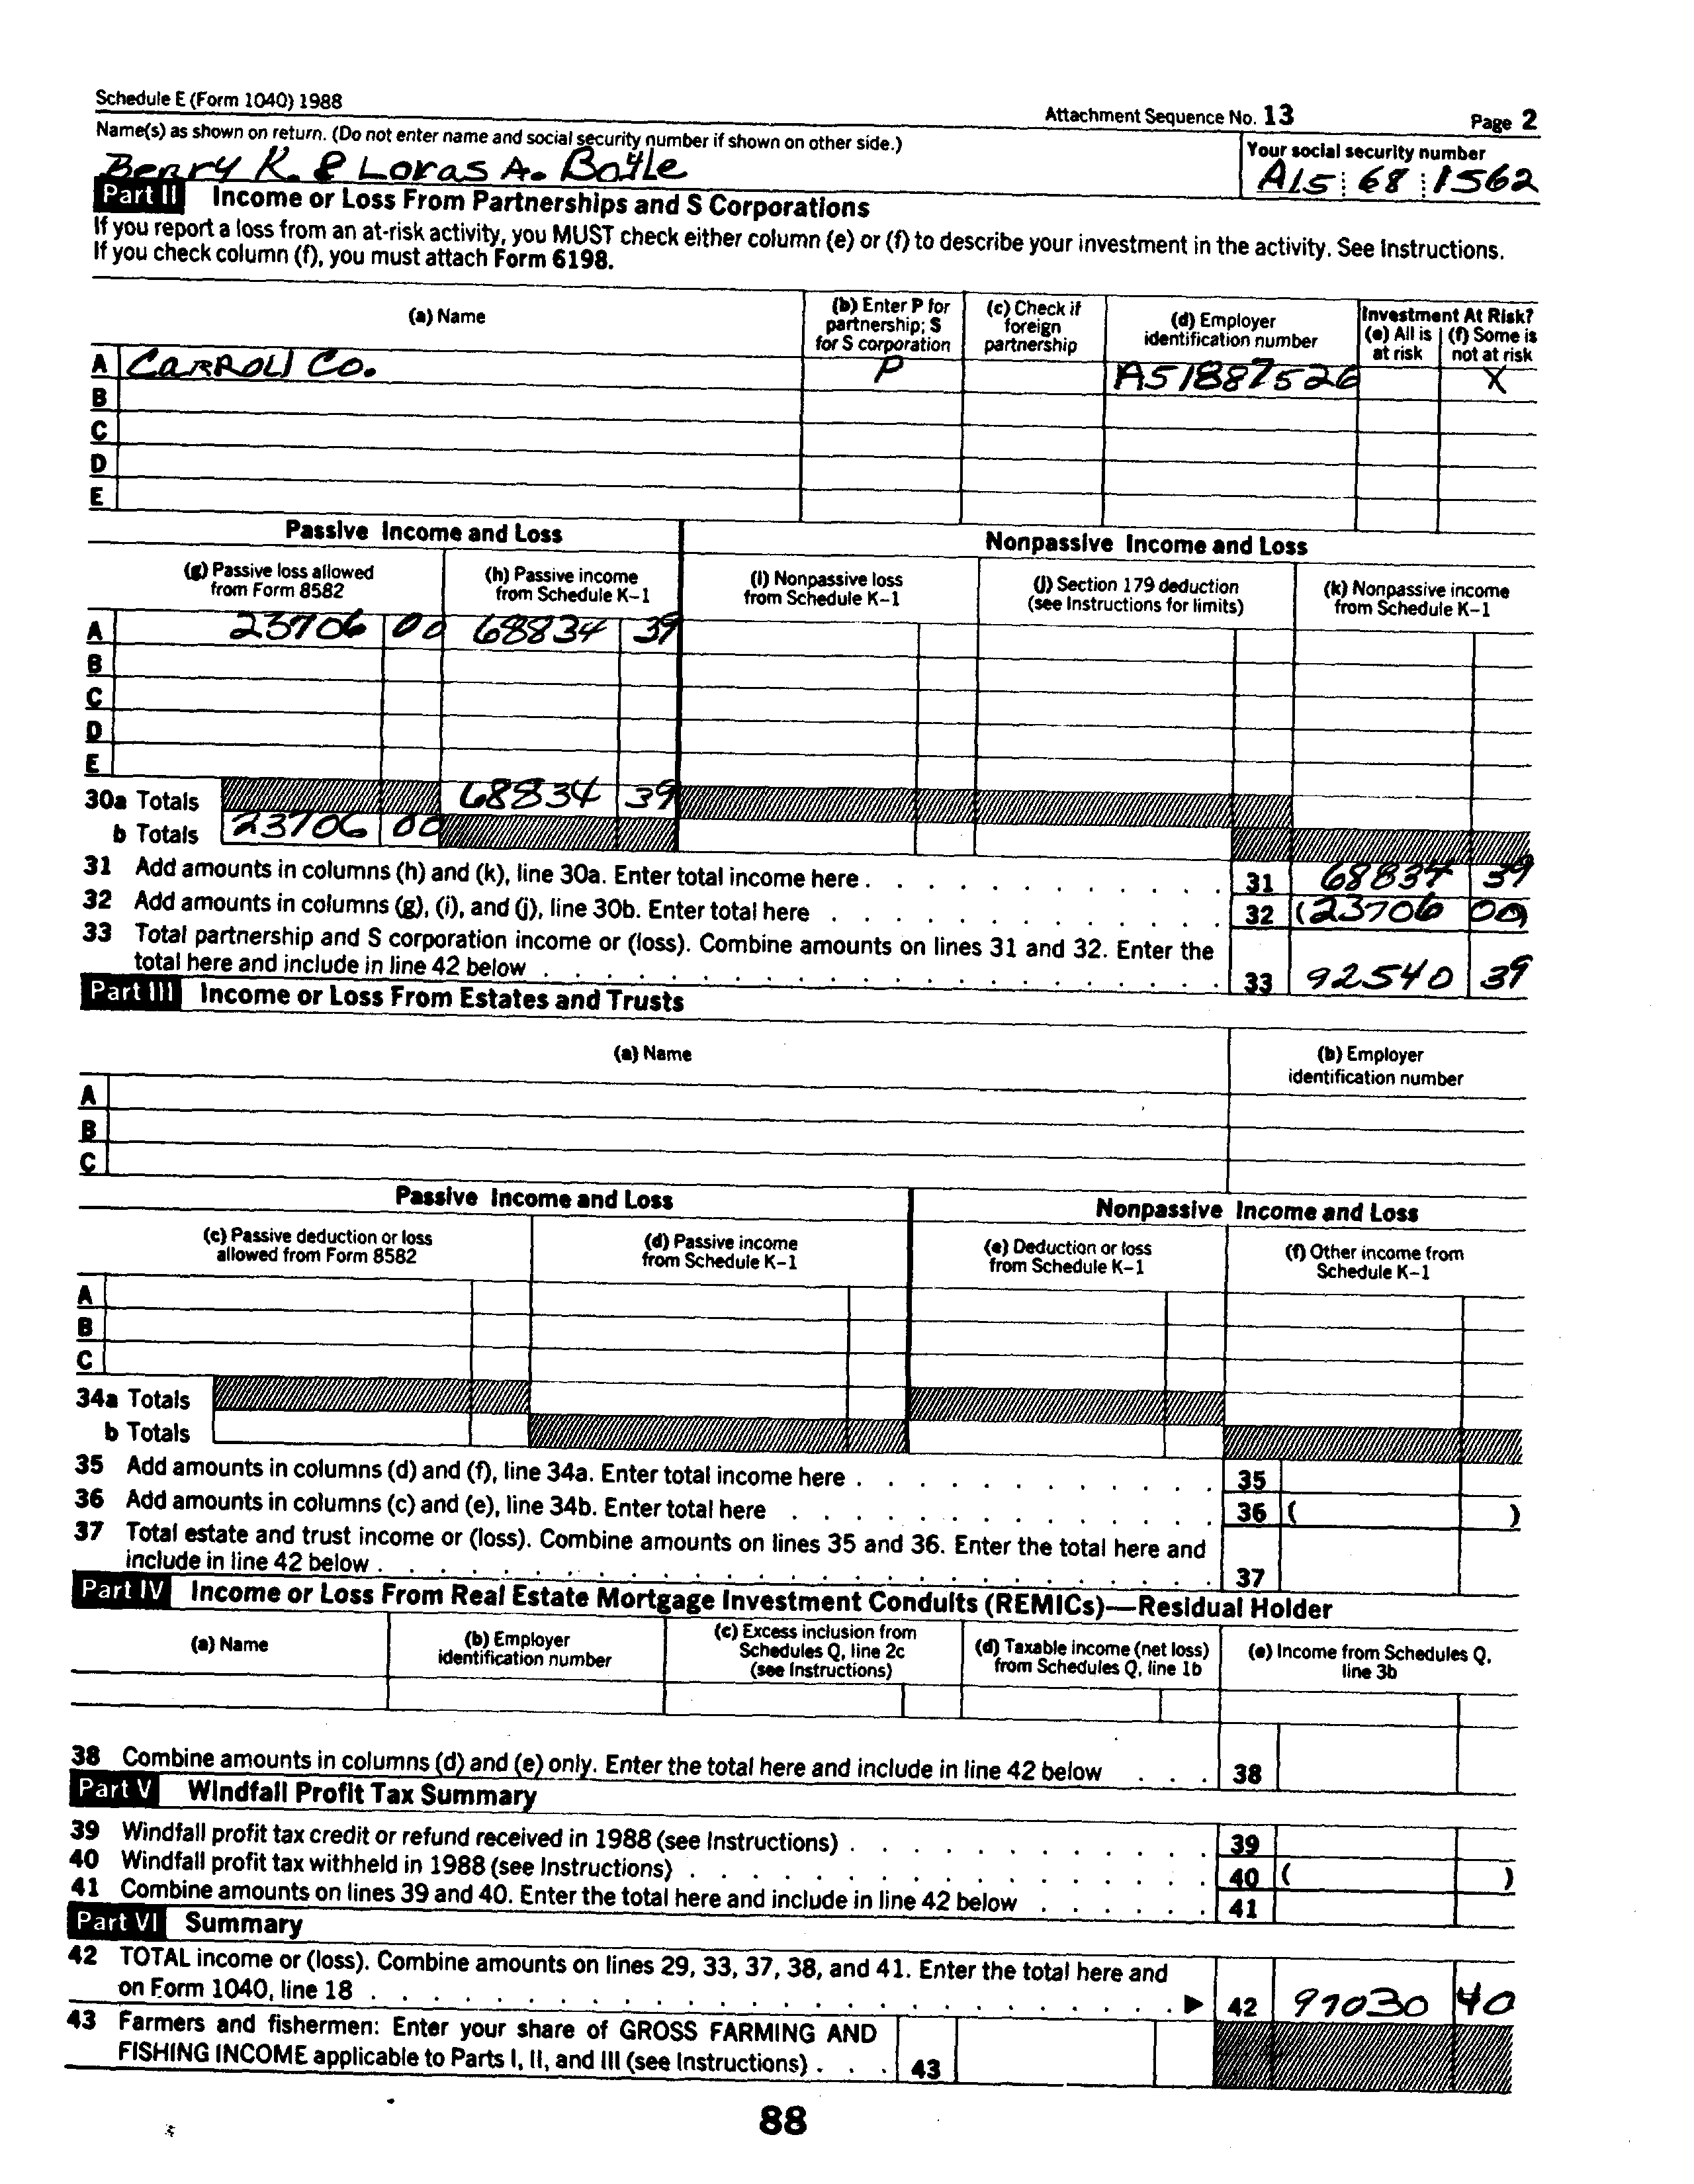 Schedule E (Form 1040) 1988
Attachment Sequence No. 13
Page 2
Name(s) as shown on return. (Do not enter name and social security number if shown on other side.)
Your social security number
Berry K. & Loras A. Boyle
A15 68 1562
Part II Income or Loss From Partnerships and S Corporations
If you report a loss from an at-risk activity, you MUST check either column (e) or (f) to describe your investment in the activity. See Instructions.
If you check column (f), you must attach Form 6198.
(a) Name
(b) Enter P for partnership; S for S corporation
(c) Check if foreign partnership
(d) Employer identification number
Investment At Risk?
(e) All is at risk
(f) Some is not at risk
A Carroll Co. P A51887526 X
B
C
D
E
Passive Income and Loss
Nonpassive Income and Loss
(g) Passive loss allowed from Form 8582
(h) Passive income from Schedule K–1
(i) Nonpassive loss from Schedule K–1
(j) Section 179 deduction (see Instructions for limits)
(k) Nonpassive income from Schedule K–1
A 23706 00 68834 39
B
C
D
E
30a Totals 68834 39
b Totals 23706 00
31 Add amounts in columns (h) and (k), line 30a. Enter total income here 31 68834 39
32 Add amounts in columns (g), (i), and (j), line 30b. Enter total here 32 (23706 00)
33 Total partnership and S corporation income or (loss). Combine amounts on lines 31 and 32. Enter the
total here and include in line 42 below 33 92540 39
Part III Income or Loss From Estates and Trusts
(a) Name
(b) Employer identification number
A
B
C
Passive Income and Loss
Nonpassive Income and Loss
(c) Passive deduction or loss allowed from Form 8582
(d) Passive income from Schedule K–1
(e) Deduction or loss from Schedule K–1
(f) Other income from Schedule K–1
A
B
C
34a Totals
b Totals
35 Add amounts in columns (d) and (f), line 34a. Enter total income here 35
36 Add amounts in columns (c) and (e), line 34b. Enter total here 36 ( )
37 Total estate and trust income or (loss). Combine amounts on lines 35 and 36. Enter the total here and
include in line 42 below 37
Part IV Income or Loss From Real Estate Mortgage Investment Conduits (REMICs)—Residual Holder
(a) Name
(b) Employer identification number
(c) Excess inclusion from Schedules Q, line 2c (see Instructions)
(d) Taxable income (net loss) from Schedules Q, line 1b
(e) Income from Schedules Q, line 3b
38 Combine amounts in columns (d) and (e) only. Enter the total here and include in line 42 below 38
Part V Windfall Profit Tax Summary
39 Windfall profit tax credit or refund received in 1988 (see Instructions) 39
40 Windfall profit tax withheld in 1988 (see Instructions) 40 ( )
41 Combine amounts on lines 39 and 40. Enter the total here and include in line 42 below 41
Part VI Summary
42 TOTAL income or (loss). Combine amounts on lines 29, 33, 37, 38, and 41. Enter the total here and
on Form 1040, line 18 ▶ 42 97030 40
43 Farmers and fishermen: Enter your share of GROSS FARMING AND
FISHING INCOME applicable to Parts I, II, and III (see Instructions) 43
88